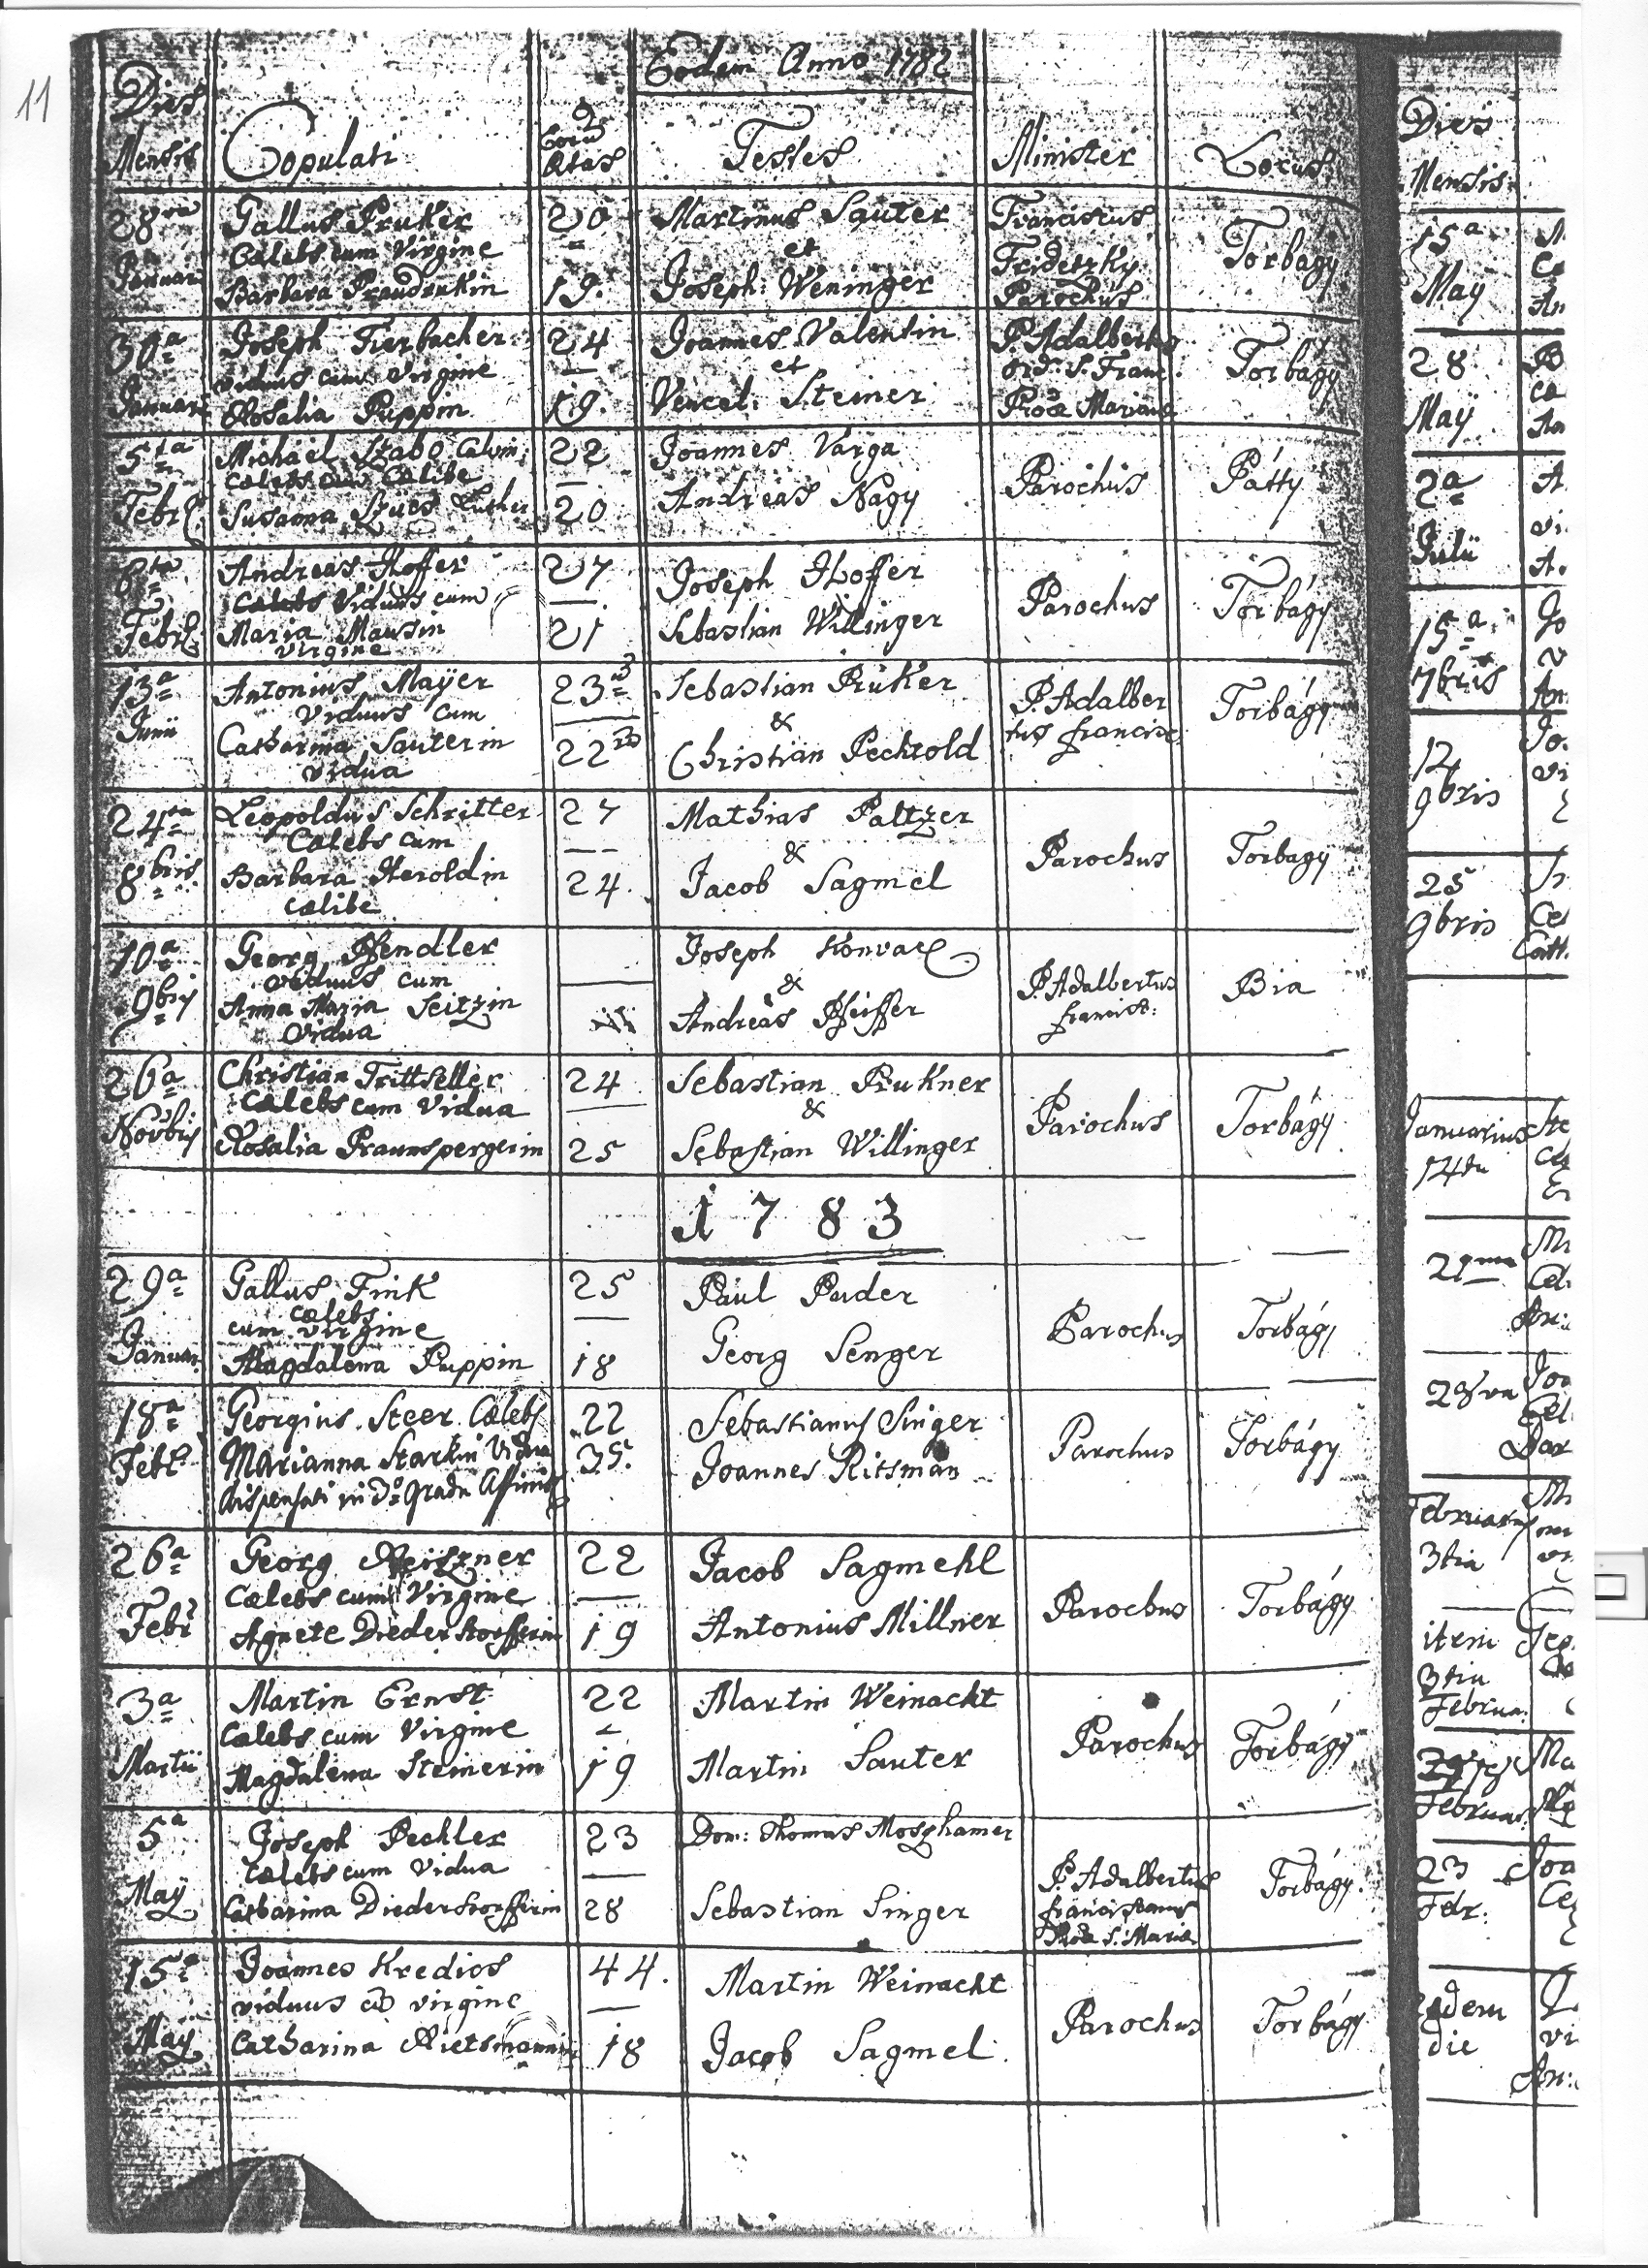 11
Eodem Anno 1782
Dies Mensis
Copulati
Eorum Ætas
Testes
Minister
Locus
28va Januari
Gallus Pruker
Cælebs cum Virgine
Barbara
20
19.
Martinus Sauter
et
Joseph: Weninger
Franciscus
Fridetzky
Parochus
Torbágy
30a Januari
Joseph Fierbacher
viduus cum virgine
Rosalia Puppin
24
19.
Joannes Valentin
et
Vencel: Steiner
P. Adalbertus
ord: S. Franc.
Proæ Marianæ
Torbágy
5ta Febr.
Michael Szabo Calvin:
Cælebs cum Cælibe
Susanna Szucs Luther
22
20
Joannes Varga
Andreas Nagy
Parochus
Pátty
6ta Febr.
Andreas Hoffer
Cælebs Viduus cum
Maria Mausin
virgine
27
21
Joseph Hoffer
Sebastian Willinger
Parochus
Torbágy
13a Junii
Antonius Mayer
Viduus cum
Catharina Sauterin
vidua
23
22
Sebastian Pruker
&
Christian Pechtold
P. Adalber
tus francisc.
Torbágy
24ta 8bris
Leopoldus Schritter
Cælebs cum
Barbara Heroldin
cælibe
27
24.
Mathias Paltzer
&
Jacob Sagmel
Parochus
Torbagy
10a 9bris
Georg Pfendler
viduus cum
Anna Maria Seitzin
Vidua
Joseph
&
Andreas Pfeiffer
P. Adalbertus
francisc:
Bia
26a Novbris
Christian Trittseller
Cælebs cum Vidua
Rosalia Praunspergerin
24
25
Sebastian Prukner
&
Sebastian Willinger
Parochus
Torbágy
1783
29a Januar.
Gallus Fink
cælebs
cum virgine
Magdalena Puppin
25
18
Paul Puder
Georg Senger
Parochus
Torbágy
18a Febr.
Georgius Steer Cælebs
Marianna Starkin Vidua
dispensati in 2o Gradu Affinit.
22
35.
Sebastianus Singer
Joannes Ritsman
Parochus
Torbágy
26a Febr
Georg Reiszner
Cælebs cum Virgine
Agnete Diederstorfferin
22
19
Jacob Sagmehl
Antonius Millner
Parochus
Torbágy
3a Martii
Martin Ernst
Cælebs cum Virgine
Magdalena Steinerin
22
19
Martin Weinacht
Martin Sauter
Parochus
Torbágy
5a Maÿ
Joseph Pechler
Cælebs cum Vidua
Catharina Diederstorfferin
23
28
Dom: Thomas Moszhamer
Sebastian Singer
P. Adalbertus
franciscanus
Proæ S. Mariæ
Torbágy.
15a Maÿ
Joannes Kredics
viduus cū virgine
Catharina Rietsmannin
44.
18
Martin Weinacht
Jacob Sagmel.
Parochus
Torbágy
Dies
Mensis
15a
Maÿ
28
Maÿ
2a
Julii
15a
7bris
12
9bris
25
9bris
Januarius
14ta
29na
28va
Februarius
3tia
item
3tia
Februa.
Februar:
23
Febr:
Eadem
die